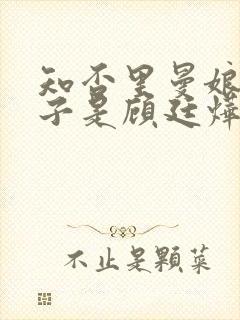 知否里曼娘
子是顾廷烨
不止是颗菜